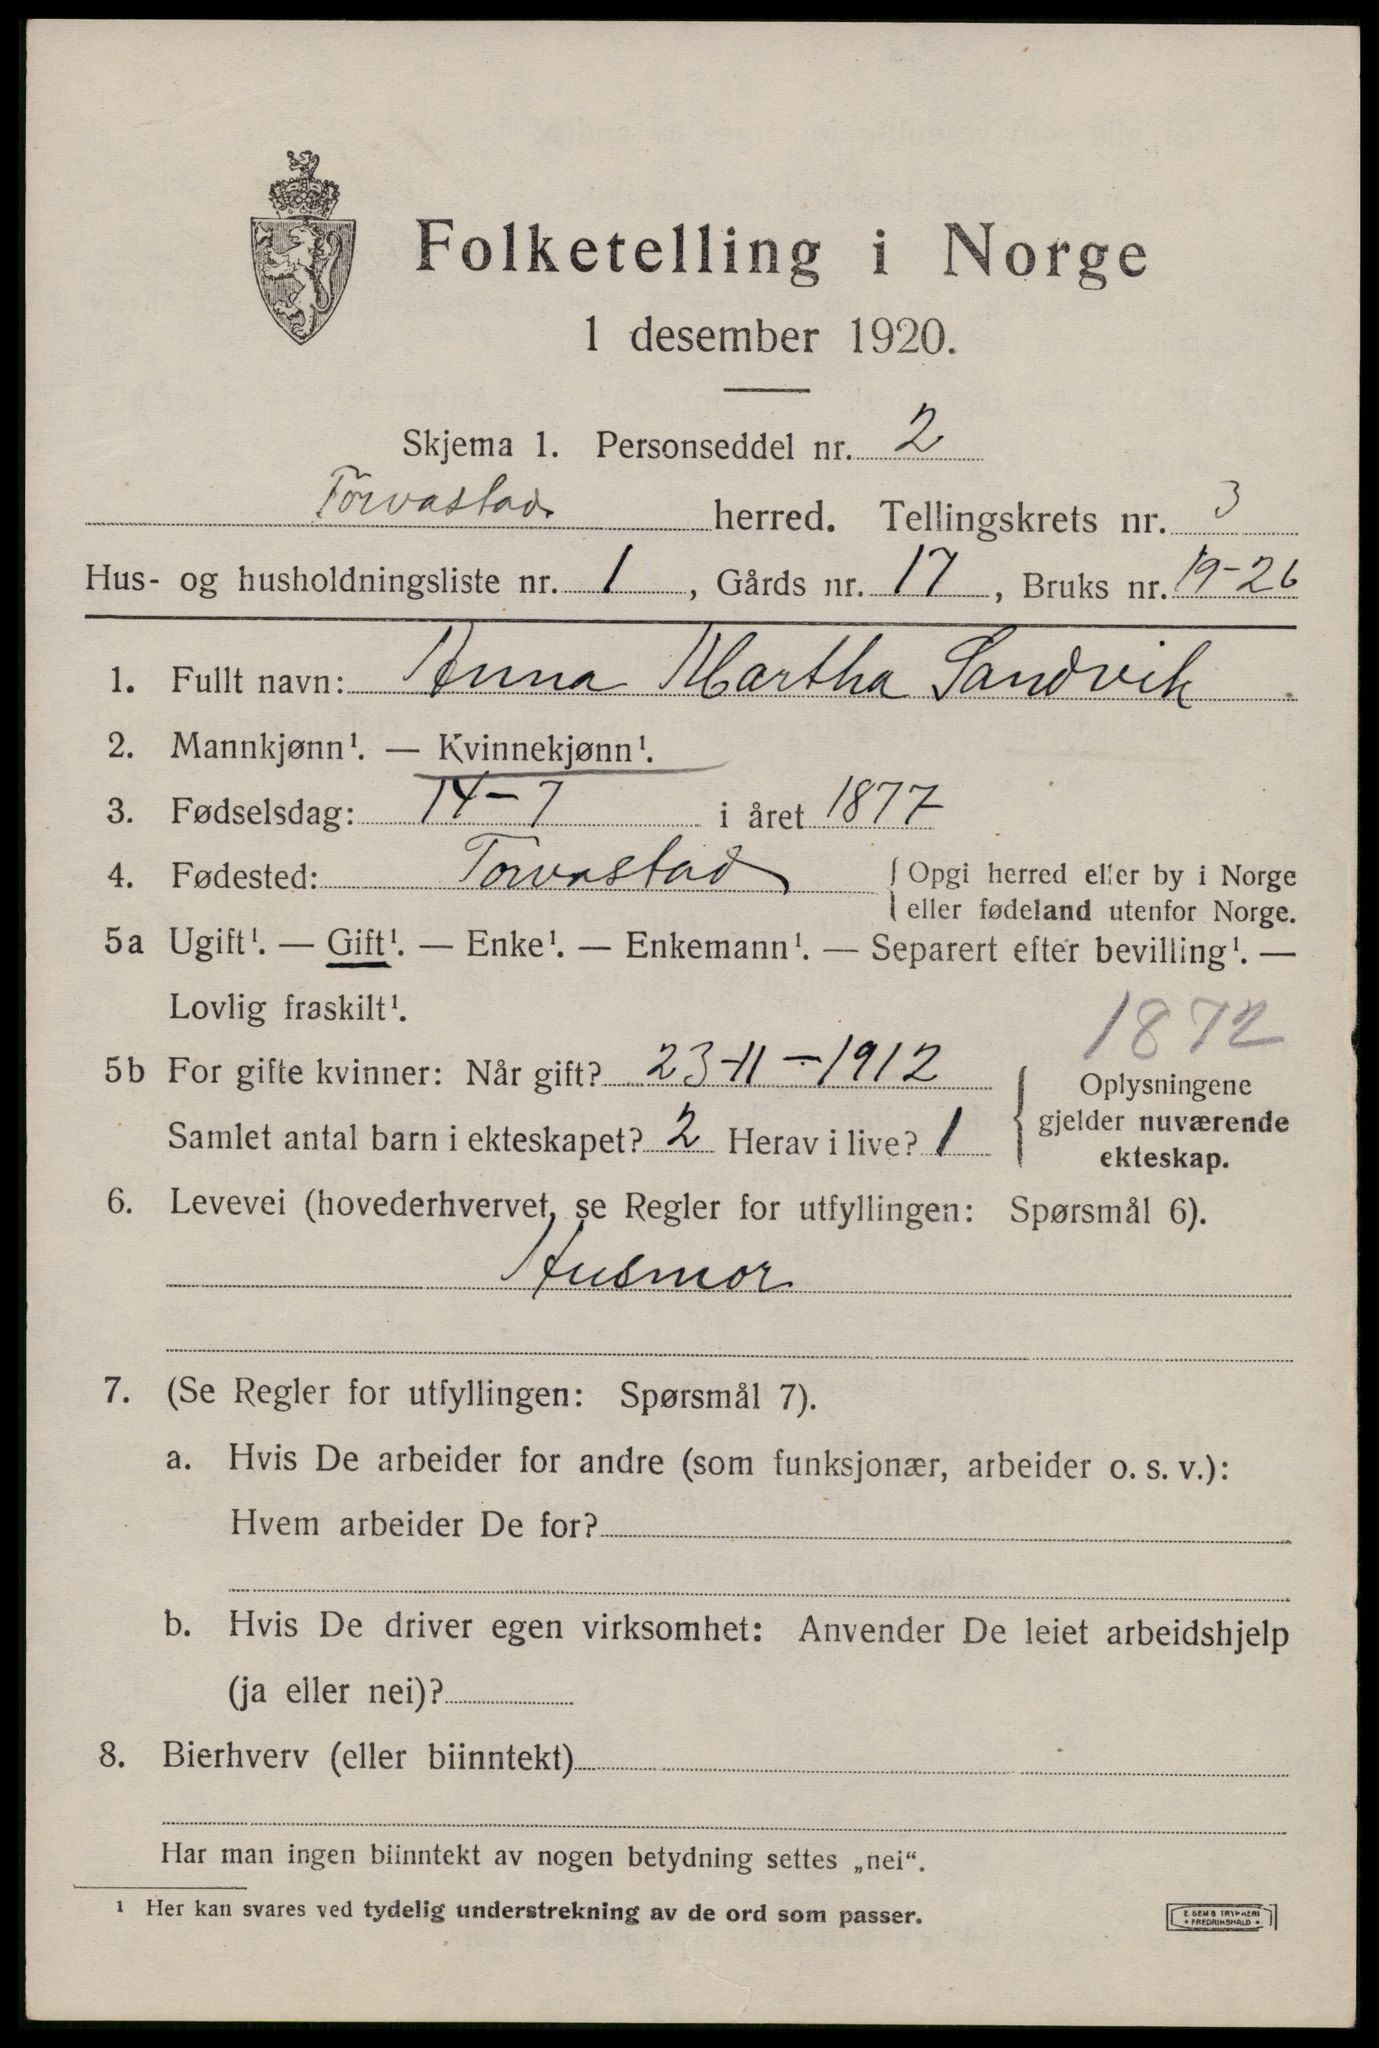 Folketelling i Norge
1 desember 1920.
Skjema 1. Personseddel nr. 2
Torvastad herred. Tellingskrets nr. 3
Hus- og husholdningsliste nr. 1, Gårds nr. 17, Bruks nr. 19-26
1. Fullt navn: Anna Martha Sandvik
2. Mannkjønn¹. — Kvinnekjønn¹.
3. Fødselsdag: 14-7 i året 1877
4. Fødested: Torvastad { Opgi herred eller by i Norge
eller fødeland utenfor Norge.
5a Ugift¹. — Gift¹. — Enke¹. — Enkemann¹. — Separert efter bevilling¹. —
Lovlig fraskilt¹.
1872
5b For gifte kvinner: Når gift? 23-11-1912
Samlet antal barn i ekteskapet? 2 Herav i live? 1
Oplysningene
gjelder nuværende
ekteskap.
6. Levevei (hovederhvervet, se Regler for utfyllingen: Spørsmål 6).
Husmor
7. (Se Regler for utfyllingen: Spørsmål 7).
a. Hvis De arbeider for andre (som funksjonær, arbeider o. s. v.):
Hvem arbeider De for?
b. Hvis De driver egen virksomhet: Anvender De leiet arbeidshjelp
(ja eller nei)?
8. Bierhverv (eller biinntekt)
Har man ingen biinntekt av nogen betydning settes „nei“.
¹ Her kan svares ved tydelig understrekning av de ord som passer.
E. SEM'S TRYKKERI
FREDRIKSHALD